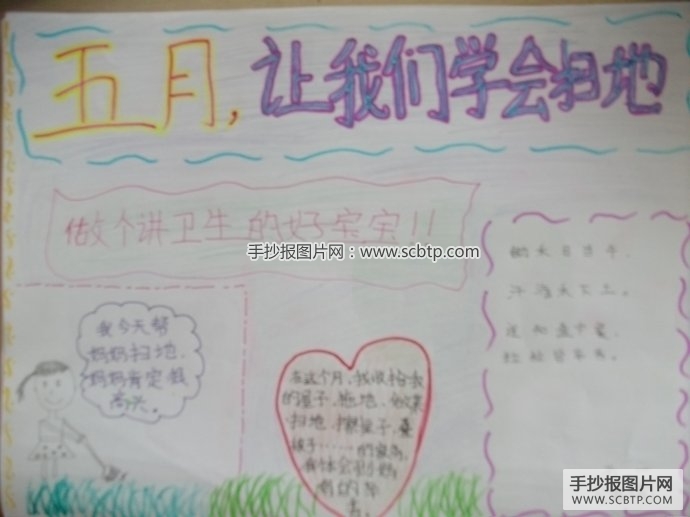 五月，让我们学会扫地
做个讲卫生的好宝宝！！
手抄报图片网：www.scbtp.com
锄禾日当午，
汗滴禾下土。
粒粒皆辛苦。
我今天帮
妈妈扫地，
妈妈肯定很
高兴。
在这个月，我收拾我
的屋子，拖地、
扫地、擦桌子、叠
被子……的家务，
我体会到妈
妈的辛
苦
手抄报图片网
WWW.SCBTP.COM